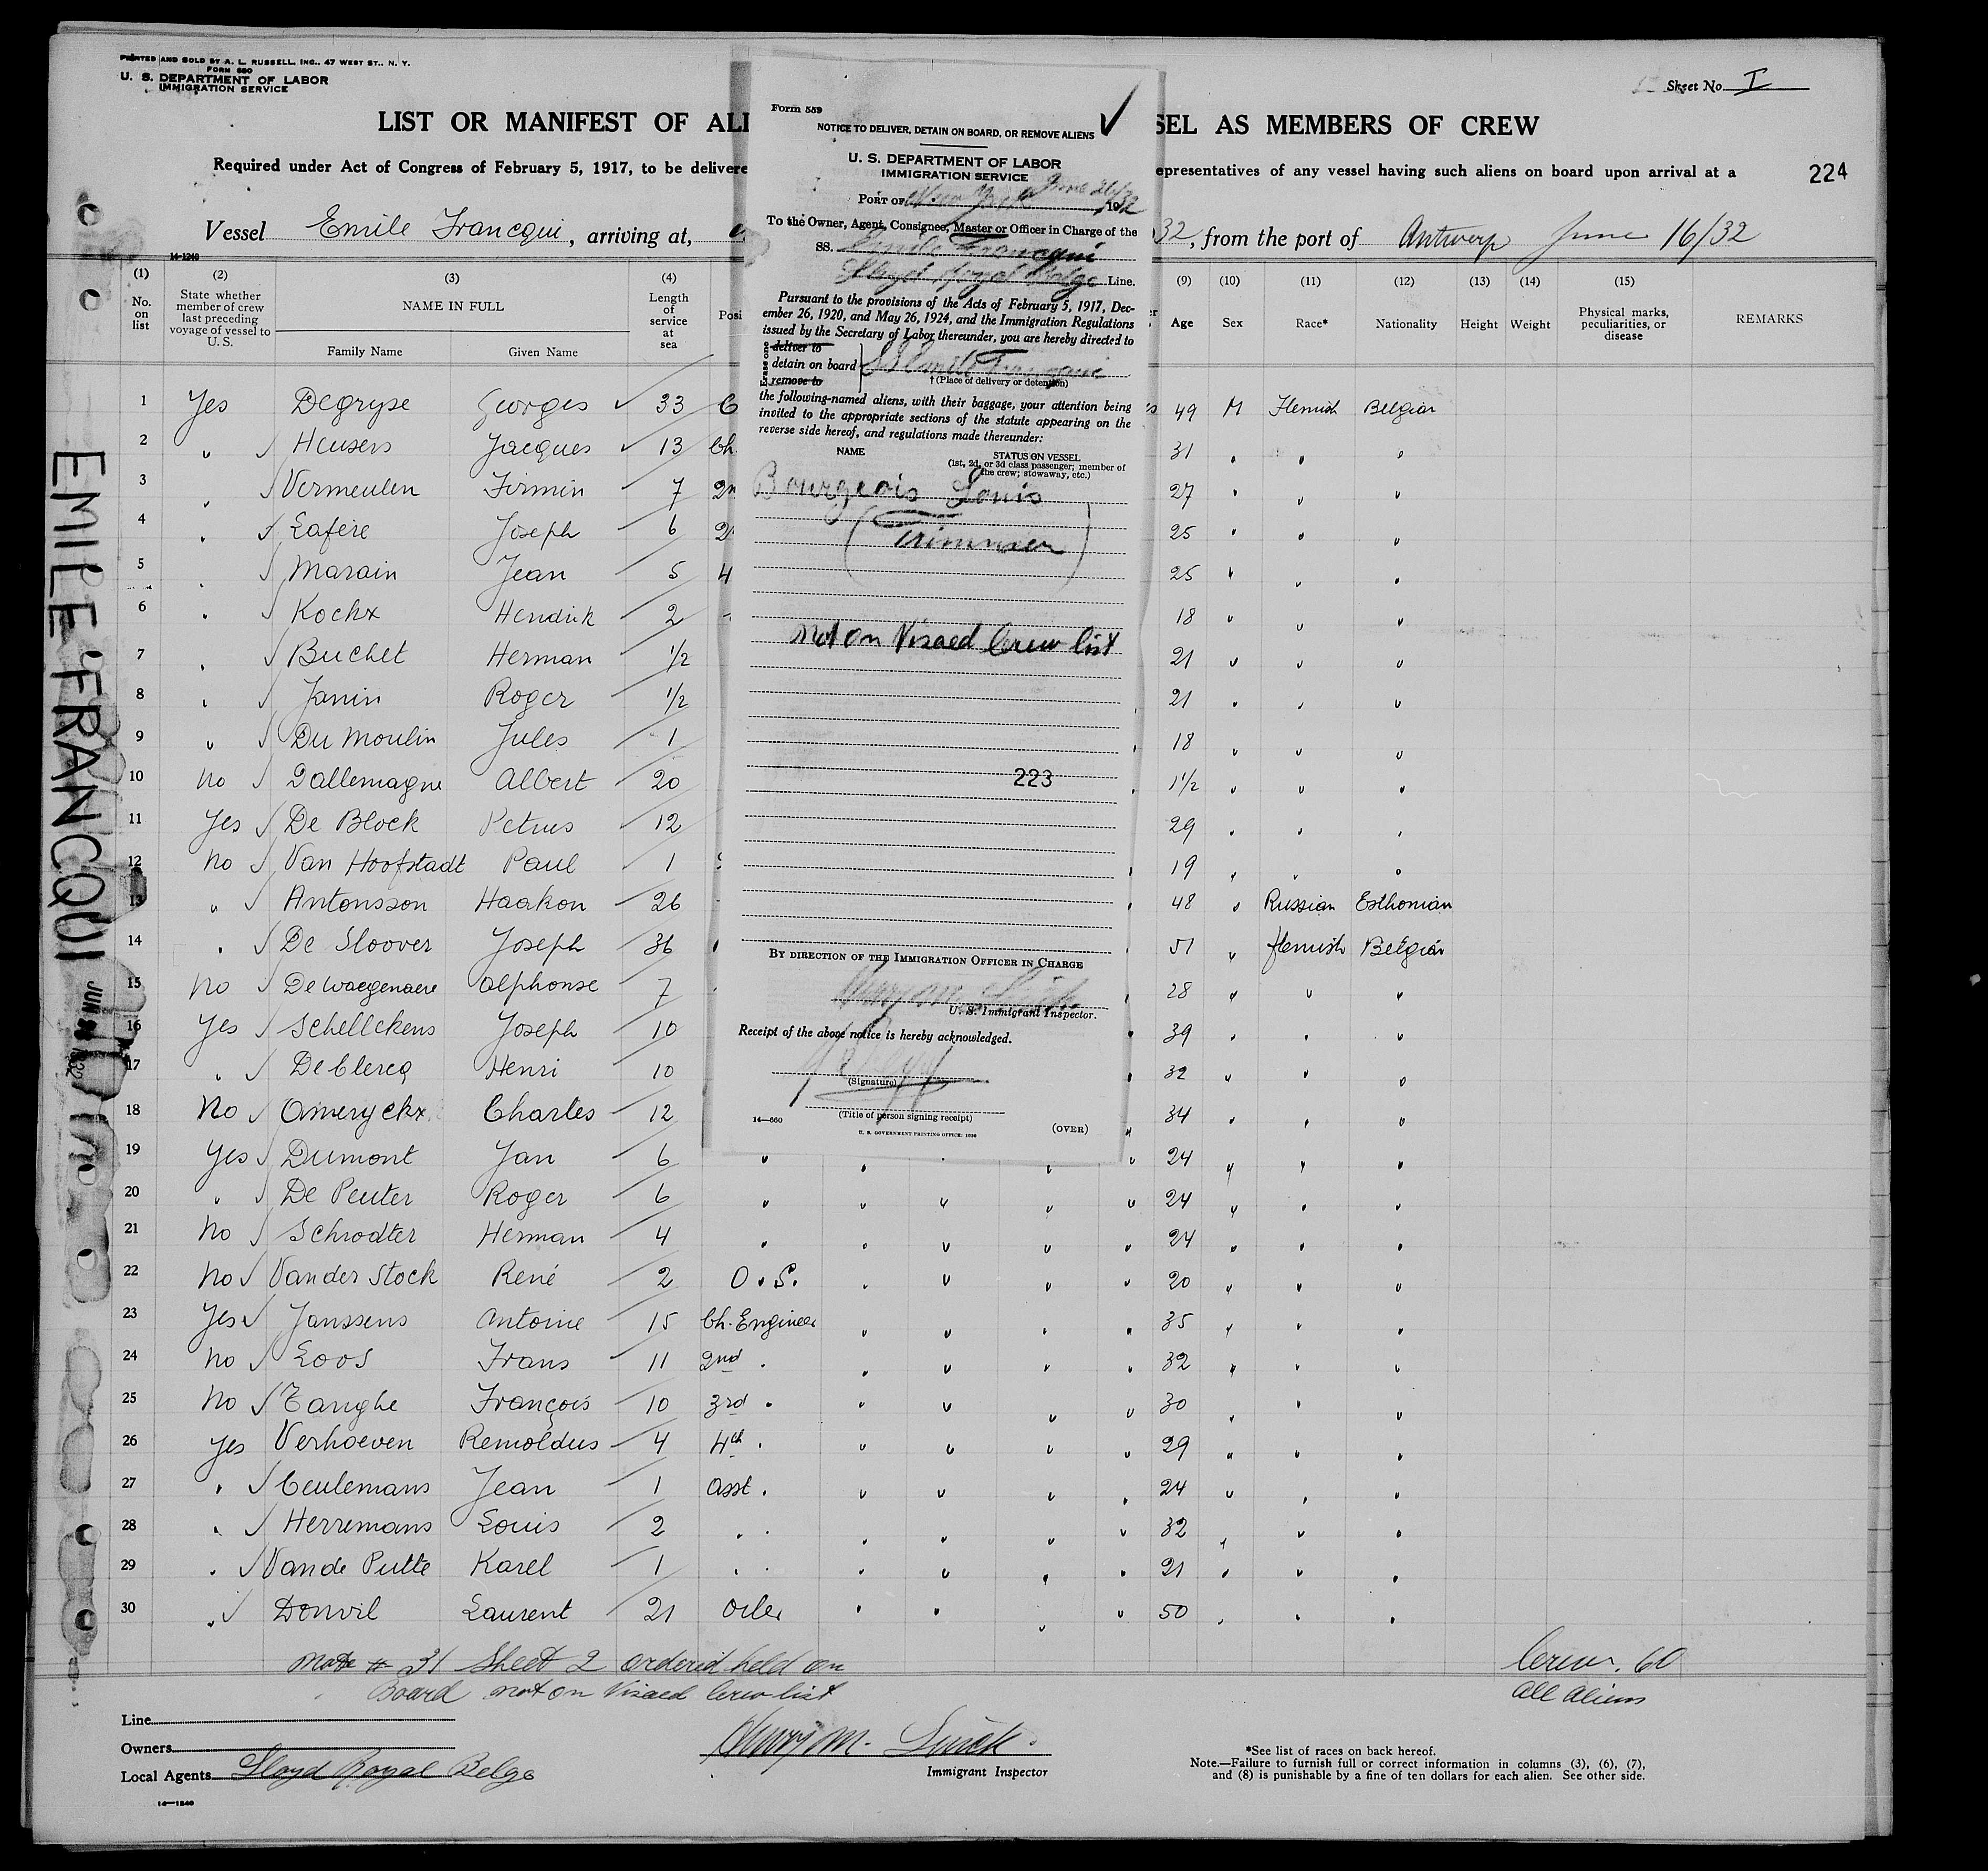 PRINTED AND SOLD BY A. L. RUSSELL, INC., 47 WEST ST., N. Y.
FORM 680
U. S. DEPARTMENT OF LABOR
IMMIGRATION SERVICE
Sheet No. I
LIST OR MANIFEST OF ALI
SEL AS MEMBERS OF CREW
Required under Act of Congress of February 5, 1917, to be delivere
epresentatives of any vessel having such aliens on board upon arrival at a
224
Vessel Emile Francqui, arriving at,
32, from the port of Antwerp June 16/32
14-1240
(1) No. on list
(2) State whether member of crew last preceding voyage of vessel to U.S.
(3) NAME IN FULL
Family Name Given Name
(4) Length of service at sea
Posi
(9) Age
(10) Sex
(11) Race*
(12) Nationality
(13) Height
(14) Weight
(15) Physical marks, peculiarities, or disease
REMARKS
1 Yes Degryse Georges ✓ 33 49 M Flemish Belgian
2 " ✓ Heusers Jacques ✓ 13 Ch. 31 " " "
3 " ✓ Vermeulen Firmin 7 2n 27 " " "
4 " ✓ Lafère Joseph 6 2 25 " " "
5 " ✓ Marain Jean 5 4 25 " " "
6 " ✓ Kockx Hendrik 2 18 " " "
7 " ✓ Buchet Herman 1/2 21 " " "
8 " ✓ Janin Roger 1/2 21 " " "
9 " ✓ Du Moulin Jules 1 18 " " "
10 No ✓ Dallemagne Albert 20 1 1/2 " " "
11 Yes ✓ De Block Petrus 12 29 " " "
12 No ✓ Van Hoofstadt Paul 1 19 " " "
13 " ✓ Antonsson Haakon 26 48 " Russian Esthonian
14 " ✓ De Sloover Joseph 36 51 " Flemish Belgian
15 No ✓ De Waegenaere Alphonse 7 28 " " "
16 Yes ✓ Schellekens Joseph 10 39 " " "
17 " ✓ De Clercq Henri 10 32 " " "
18 No ✓ Ameryckx Charles 12 34 " " "
19 Yes ✓ Dumont Jan 6 " " " " " 24 " " "
20 " ✓ De Peuter Roger 6 " " " " " 24 " " "
21 No ✓ Schrodter Herman 4 " " " " " 24 " " "
22 No ✓ Vander Stock René 2 O.S. " " " " 20 " " "
23 Yes ✓ Janssens Antoine 15 Ch. Engineer " " " " 35 " " "
24 No ✓ Loos Frans 11 2nd " " " " " 32 " " "
25 No ✓ Tanghe François 10 3rd " " " " " 30 " " "
26 Yes Verhoeven Remoldus 4 4th " " " " " 29 " " "
27 " ✓ Ceulemans Jean 1 Asst. " " " " 24 " " "
28 " ✓ Herremans Louis 2 " " " " " " 32 " " "
29 " ✓ Van de Putte Karel 1 " " " " " " 21 " " "
30 " ✓ Donvil Laurent 21 Oiler " " " " 50 " " "
Note # 31 Sheet 2 ordered held on
Board not on Visaed Crew list
Crew. 60
All Aliens
Line
Owners
Local Agents Lloyd Royal Belge
Immigrant Inspector
*See list of races on back hereof.
Note.—Failure to furnish full or correct information in columns (3), (6), (7),
and (8) is punishable by a fine of ten dollars for each alien. See other side.
14—1240
EMILE FRANCQUI
Form 559
✓
NOTICE TO DELIVER, DETAIN ON BOARD, OR REMOVE ALIENS
U. S. DEPARTMENT OF LABOR
IMMIGRATION SERVICE
PORT OF New York June 26/32
To the Owner, Agent, Consignee, Master or Officer in Charge of the
SS. Emile Francqui
Lloyd Royal Belge Line.
Pursuant to the provisions of the Acts of February 5, 1917, Dec-
ember 26, 1920, and May 26, 1924, and the Immigration Regulations
issued by the Secretary of Labor thereunder, you are hereby directed to
Erase one
deliver to
detain on board SS Emile Francqui
remove to
†(Place of delivery or detention)
the following-named aliens, with their baggage, your attention being
invited to the appropriate sections of the statute appearing on the
reverse side hereof, and regulations made thereunder:
NAME
STATUS ON VESSEL
(1st, 2d, or 3d class passenger; member of
the crew; stowaway, etc.)
Bourgeois Louis
(Trimmer)
Not on Visaed Crew list
223
BY DIRECTION OF THE IMMIGRATION OFFICER IN CHARGE
U. S. Immigrant Inspector.
Receipt of the above notice is hereby acknowledged.
(Signature)
(Title of person signing receipt)
14—660
(OVER)
U. S. GOVERNMENT PRINTING OFFICE: 1930